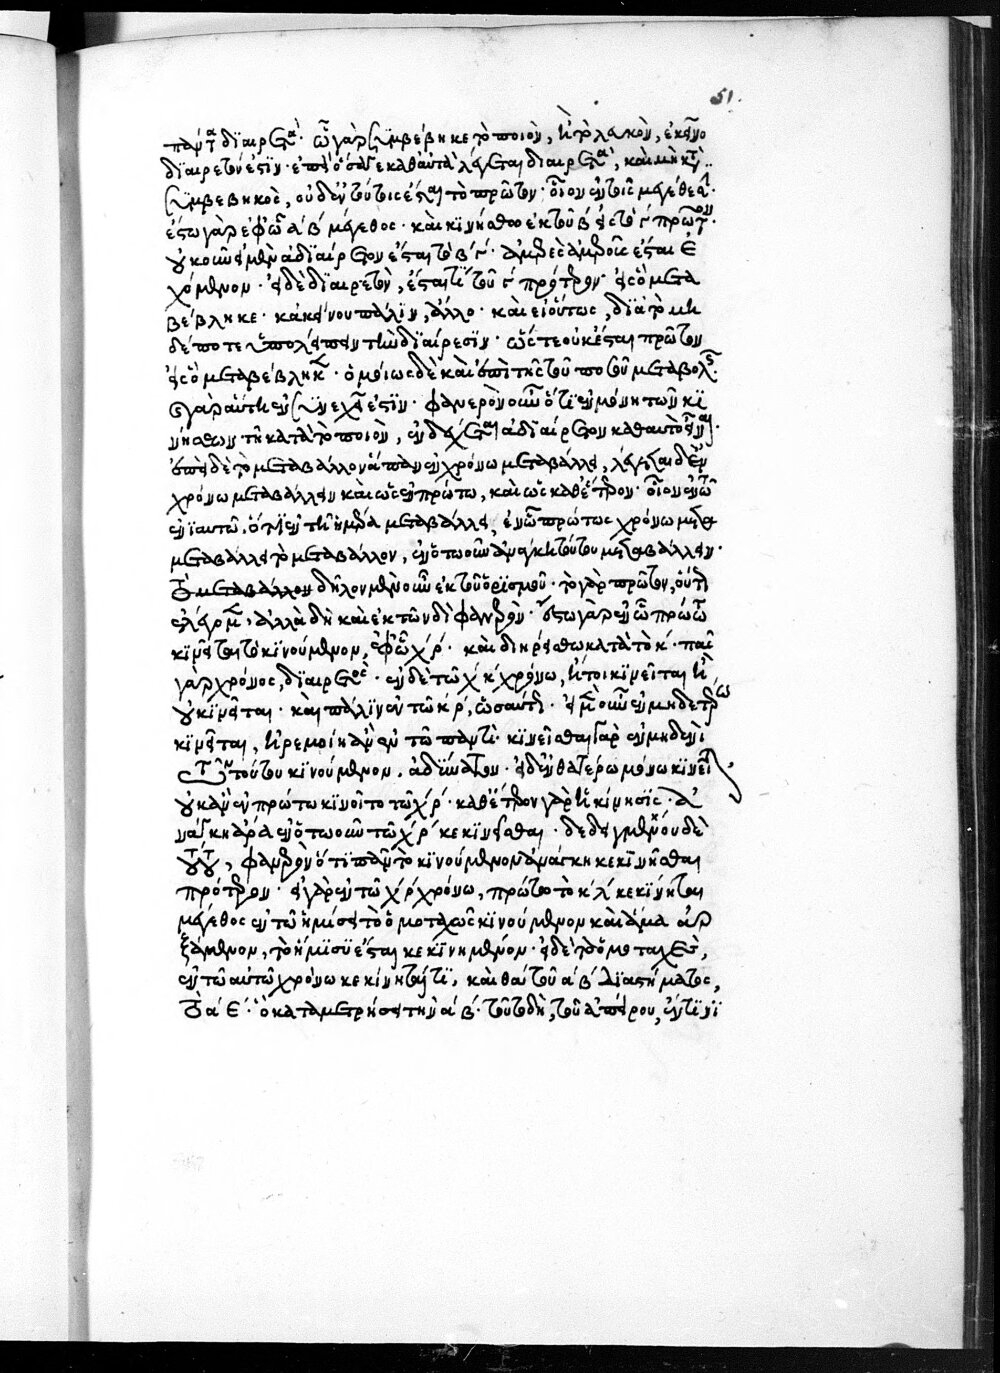 51.
πάντα διαιρετά· ᾧ γὰρ συμβέβηκε τὸ ποιὸν, ἢ τὸ λευκὸν, ἐκεῖνο
διαιρετόν ἐστιν· ἐπεὶ ὅσα γε καθ' αὑτὰ λέγεται διαιρετὰ, καὶ μὴ κατὰ
συμβεβηκὸς, οὐδ' ἐν τούτοις ἔσται τὸ πρῶτον· οἷον ἐν τοῖς μεγέθεσι·
ἔστω γὰρ ἐφ' ᾧ α β μέγεθος· καὶ κινήσθω ἐκ τοῦ β εἰς τὸ γ πρῶτον·
οὐκοῦν εἰ μὲν ἀδιαίρετον ἔσται τὸ β γ· ἀμερὲς ἀμεροῦς ἔσται ἐ
χόμενον· εἰ δὲ διαιρετὸν, ἔσται τι τοῦ γ πρότερον· εἰς ὃ μετα
βέβληκε· κἀκείνου πάλιν, ἄλλο· καὶ ἀεὶ οὕτως, διὰ τὸ μη
δέποτε ὑπολείπειν τὴν διαίρεσιν· ὥστε οὐκ ἔσται πρῶτον
εἰς ὃ μεταβέβληκεν· ὁμοίως δὲ καὶ ἐπὶ τῆς τοῦ ποσοῦ μεταβολῆς·
καὶ γὰρ αὕτη ἐν συνεχεῖ ἐστιν· φανερὸν οὖν ὅτι ἐν μόνῃ τῶν κι
νήσεων τῇ κατὰ τὸ ποιὸν, ἐνδέχεται ἀδιαίρετον καθ' αὑτὸ εἶναι·
ἐπεὶ δὲ τὸ μεταβάλλον ἅπαν ἐν χρόνω μεταβάλλει, λέγεται δ' ἐν
χρόνω μεταβάλλειν καὶ ὡς ἐν πρώτω, καὶ ὡς καθ' ἕτερον· οἷον ἐν τῶ
ἐνιαυτῶ, ὅτι ἐν τῇ ἡμέρα μεταβάλλει, ἐν ᾧ πρώτως χρόνω μετα
μεταβάλλει τὸ μεταβάλλον, ἐν ὁτωοῦν ἀνάγκη τούτου μεταβάλλειν·
τὸ μεταβάλλον δῆλον μὲν οὖν ἐκ τοῦ ὁρισμοῦ· τὸ γὰρ πρῶτον, οὕτως
ἐλέγομεν, ἀλλὰ δὴ καὶ ἐκ τῶνδε φανερὸν· ἔστω γὰρ ἐν ᾧ πρώτω
κινεῖται τὸ κινούμενον, ἐφ' ᾧ χ ρ· καὶ διῃρήσθω κατὰ τὸ κ· πᾶς
γὰρ χρόνος, διαιρετός· ἐν δὲ τῶ χ κ χρόνω, ἤτοι κινεῖται ἢ
οὐ κινεῖται· καὶ πάλιν ἐν τῶ κ ρ, ὡσαύτως· εἰ μὲν οὖν ἐν μηδετέρω
κινεῖται, ἠρεμοίη ἂν ἐν τῶ παντί· κινεῖσθαι γὰρ ἐν μηδενὶ
τῶν τούτου κινούμενον, ἀδύνατον· εἰ δ' ἐν θατέρω μόνω κινεῖται
οὐκ ἂν ἐν πρώτω κινοῖτο τῶ χ ρ· καθ' ἕτερον γὰρ ἡ κίνησις· ἀ
νάγκη ἄρα ἐν ὁτωοῦν τῶ χ ρ κεκινεῖσθαι· δεδειγμένου δὲ
τούτου, φανερὸν ὅτι πᾶν τὸ κινούμενον ἀνάγκη κεκινῆσθαι
πρότερον· εἰ γὰρ ἐν τῶ χ ρ χρόνω, πρώτω τὸ κ λ κεκίνηται
μέγεθος ἐν τῶ ἡμίσει τὸ ὁμοταχῶς κινούμενον καὶ ἅμα ἀρ
ξάμενον, τὸ ἥμισυ ἔσται κεκινημένον· εἰ δὲ τὸ ὁμοταχὲς,
ἐν τῶ αὐτῶ χρόνω κεκίνηταί τι, καὶ θά τοῦ α β διαστήματος,
τὸ α ε· ὃ καταμετρήσει τὴν α β· τοῦτο δὴ, τοῦ ἀπείρου, ἔν τινι